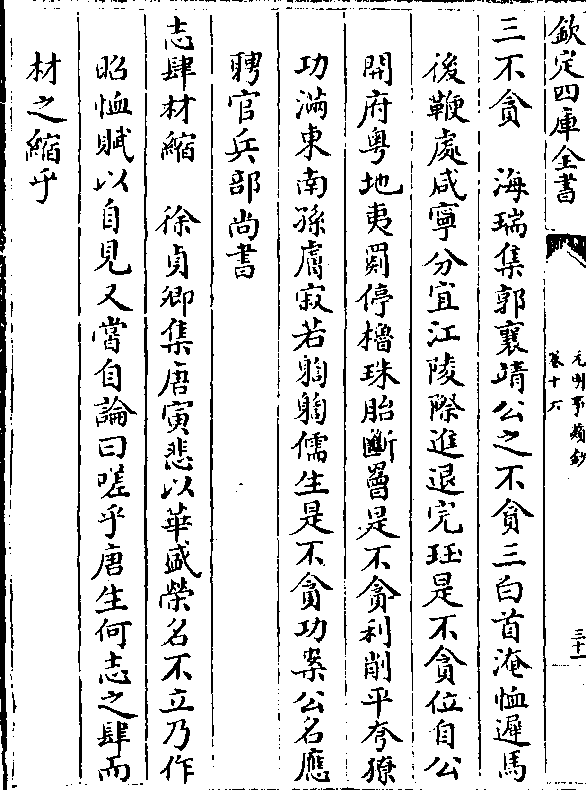 欽定四庫全書
元明事類鈔
卷十六
三十一
三不貪　海瑞集郭襄靖公之不貪三白首淹恤遲馬
後鞭處咸寧分宜江陵際進退完珏是不貪位自公
開府粤地夷罰停櫓珠胎斷罾是不貪利削平夸獠
功滿東南孫膚寂若躬躬儒生是不貪功案公名應
聘官兵部尚書
志肆材縮　徐貞卿集唐寅悲以華盛榮名不立乃作
昭恤賦以自見又嘗自論曰嗟乎唐生何志之肆而
材之縮乎